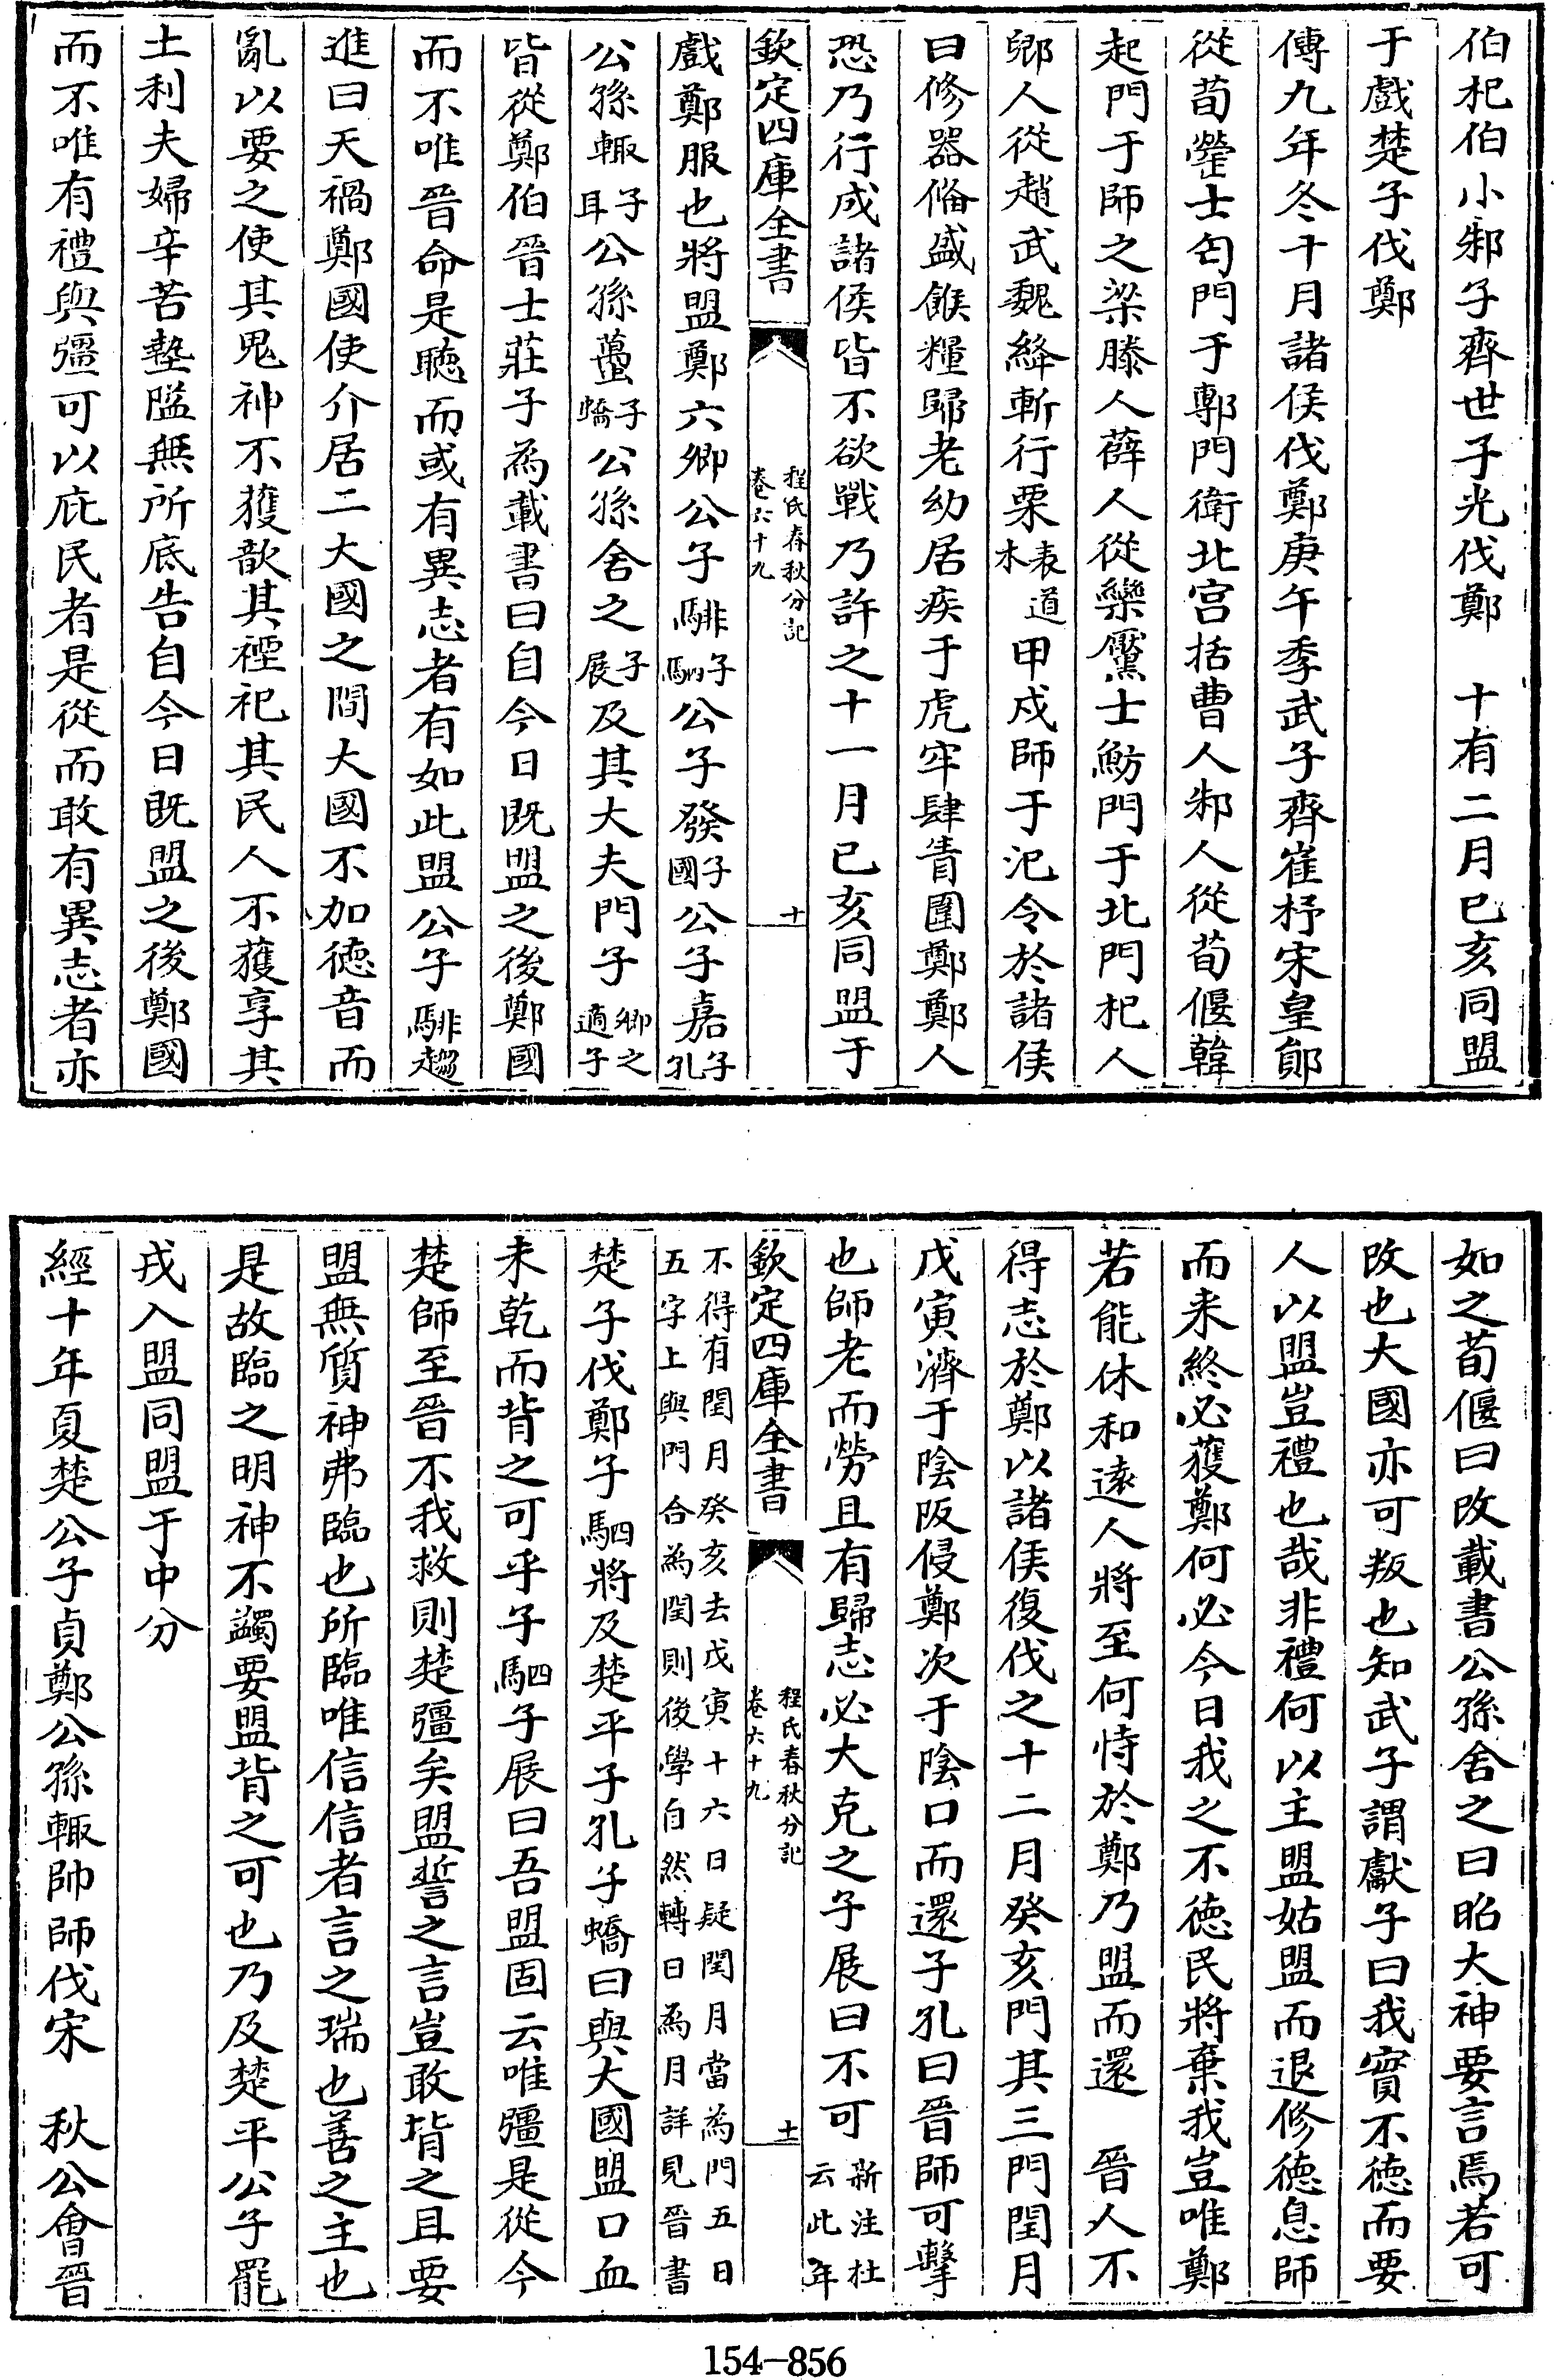 伯杞伯小邾子齊世子光伐鄭　十有二月己亥同盟
于戲楚子伐鄭
傳九年冬十月諸侯伐鄭庚午季武子齊崔杼宋皇鄖
從荀罃士匄門于鄟門衛北宮括曹人邾人從荀偃韓
起門于師之梁滕人薛人從欒黶士魴門于北門杞人
郳人從趙武魏絳斬行栗表道木甲戌師于氾令於諸侯
曰修器備盛餱糧歸老幼居疾于虎牢肆眚圍鄭鄭人
恐乃行成諸侯皆不欲戰乃許之十一月己亥同盟于
欽定四庫全書
程氏春秋分記
卷六十九
十
戲鄭服也將盟鄭六卿公子騑子駟公子發子國公子嘉子孔
公孫輒子耳公孫蠆子蟜公孫舍之子展及其大夫門子卿之適子
皆從鄭伯晉士莊子為載書曰自今日既盟之後鄭國
而不唯晉命是聽而或有異志者有如此盟公子騑趨
進曰天禍鄭國使介居二大國之間大國不加德音而
亂以要之使其鬼神不獲歆其禋祀其民人不獲享其
土利夫婦辛苦墊隘無所底告自今日既盟之後鄭國
而不唯有禮與彊可以庇民者是從而敢有異志者亦
如之荀偃曰改載書公孫舍之曰昭大神要言焉若可
改也大國亦可叛也知武子謂獻子曰我實不德而要
人以盟豈禮也哉非禮何以主盟姑盟而退修德息師
而來終必獲鄭何必今日我之不德民將棄我豈唯鄭
若能休和遠人將至何恃於鄭乃盟而還　晉人不
得志於鄭以諸侯復伐之十二月癸亥門其三門閏月
戊寅濟于陰阪侵鄭次于陰口而還子孔曰晉師可擊
也師老而勞且有歸志必大克之子展曰不可新注杜云此年
欽定四庫全書
程氏春秋分記
卷六十九
十一
不得有閏月癸亥去戊寅十六日疑閏月當為門五日
五字上與門合為閏則後學自然轉日為月詳見晉書
楚子伐鄭子駟將及楚平子孔子蟜曰與大國盟口血
未乾而背之可乎子駟子展曰吾盟固云唯彊是從今
楚師至晉不我救則楚彊矣盟誓之言豈敢背之且要
盟無質神弗臨也所臨唯信信者言之瑞也善之主也
是故臨之明神不蠲要盟背之可也乃及楚平公子罷
戎入盟同盟于中分
經十年夏楚公子貞鄭公孫輒帥師伐宋　秋公會晉
154-856